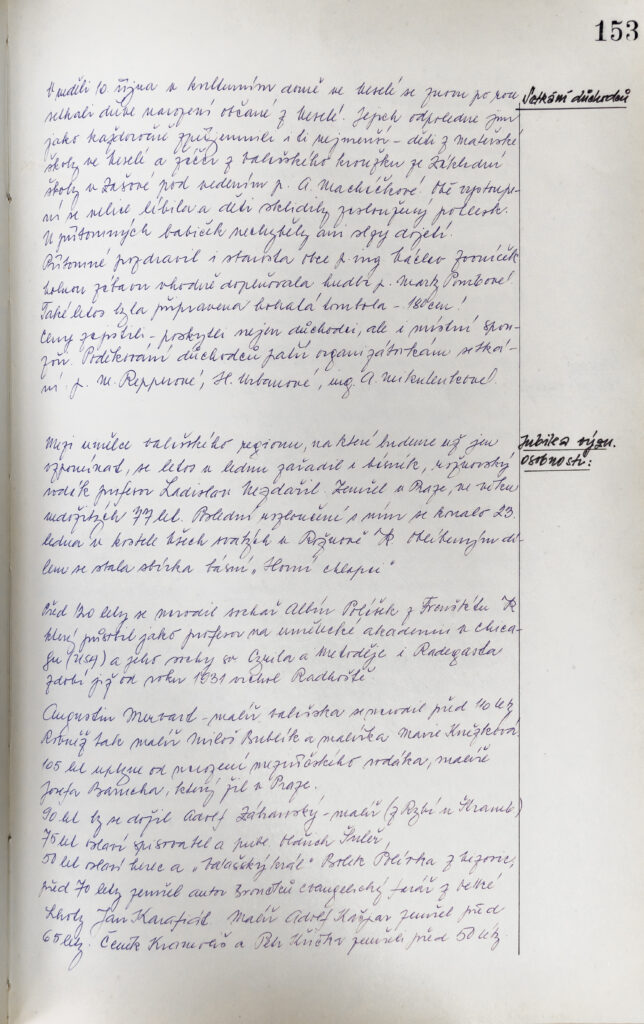 153
Setkání důchodců
V neděli 10. října v kulturním domě ve Veselé se znovu po roce
setkali dříve narození občané z Veselé. Jejich odpoledne jim
jako každoročně zpříjemnili i ti nejmenší - děti z mateřské
školy ve Veselé a žáčci z valašského kroužku ze Základní
školy v Zašové pod vedením p. A. Macháčkové. Obě vystoupe-
ní se velice líbila a děti sklidily zasloužený potlesk.
U přítomných babiček nechyběly ani slzy dojetí.
Přítomné pozdravil i starosta obce p. ing Václav Zvoníček
volnou zábavu vhodně doplňovala hudba p. Marty Pombové.
Také letos byla připravena bohatá tombola - 180 cen!
Ceny zajistili - poskytli nejen důchodci, ale i místní spon-
zoři. Poděkování důchodců patří organizátorkám setká-
ní p. M. Repperové, H. Urbanové, ing. A. Mikulenkové.
Jubilea význ.
osobností:
Mezi umělce valašského regionu, na které budeme už jen
vzpomínat, se letos v lednu zařadil i básník, rožnovský
rodák profesor Ladislav Nezdařil. Zemřel v Praze, ve věku
nedožitých 77 let. Poslední rozloučení s ním se konalo 23.
ledna v kostele Všech svatých v Rožnově p/R. Oblíbeným dí-
lem se stala sbírka básní "Horní chlapci"
Před 120 lety se narodil sochař Albín Polášek z Frenštátu p/R
který působil jako profesor na umělecké akademii v Chica-
gu (USA) a jeho sochy sv Cyrila a Metoděje i Radegasta
zdobí již od roku 1931 vrchol Radhoště.
Augustin Mervart - malíř valašska se narodil před 110 lety
Rovněž tak malíř Miloš Bublík a malířka Marie Knížková
105 let uplyne od narození meziříčského rodáka, malíře
Josefa Barucha, který žil v Praze.
90 let by se dožil Adolf Záhorský - malíř (z Rybí u Štramb)
75 let oslaví spisovatel a publ. Oldřich Šuleř,
50 let oslaví herec a "valašský král" Bolek Polívka z Vizovic,
před 70 lety zemřel autor Broučků evangelický farář z Velké
Lhoty Jan Karafiát. Malíř Adolf Kašpar zemřel před
65 lety. Čeněk Kramoliš a Petr Kučka zemřeli před 50 lety.